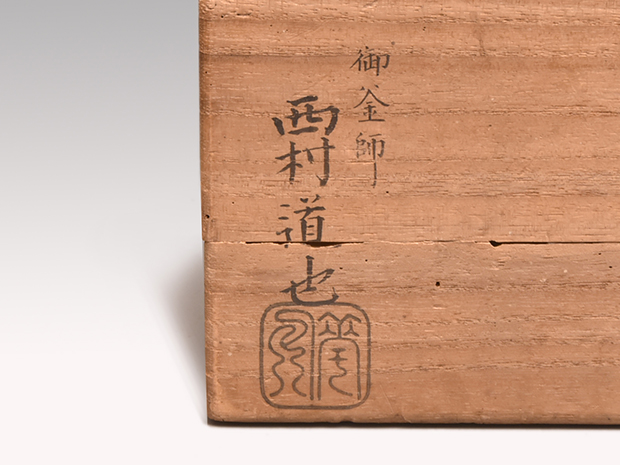 御釜師
西村道也